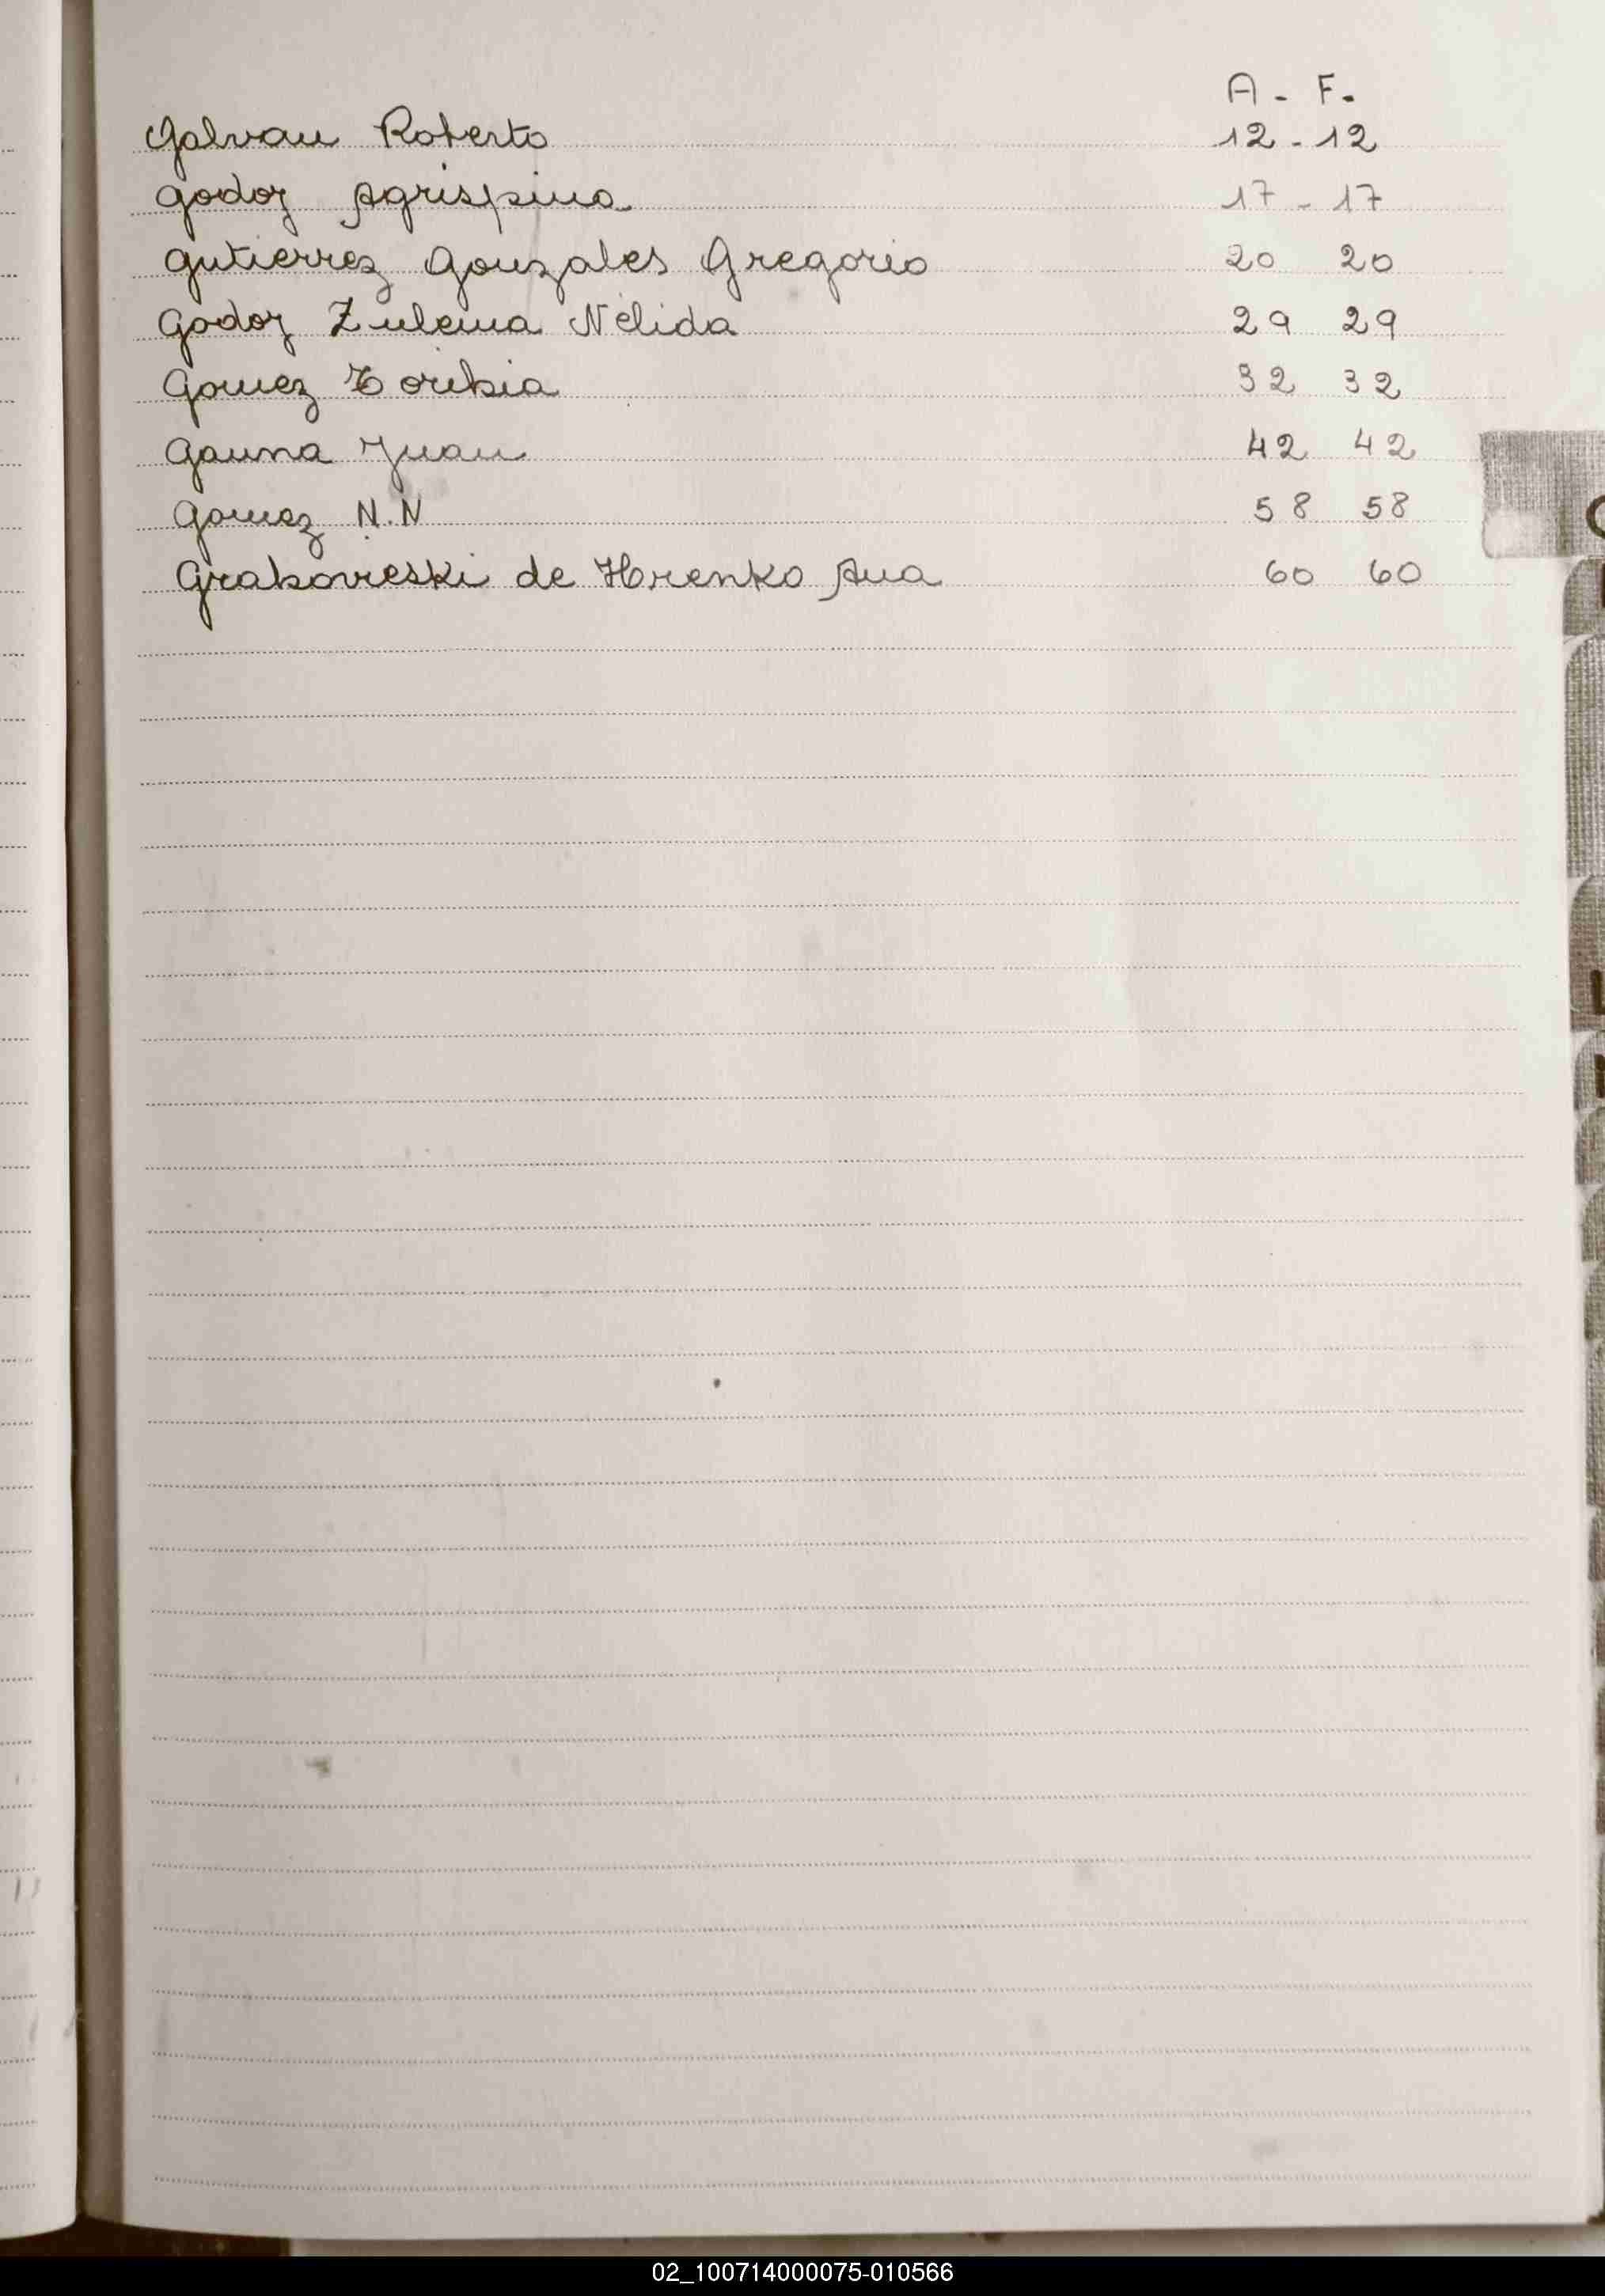 A - F.
Galvan Roberto 12 - 12
Godoy Agrispina 17 - 17
Gutierrez Gonzales Gregorio 20 20
Godoy Zulema Nélida 29 29
Gomez Toribia 32 32
Gauna Juan 42 42
Gomez N.N 58 58
Grabovieski de Hrenko Ana 60 60
02_100714000075-010566